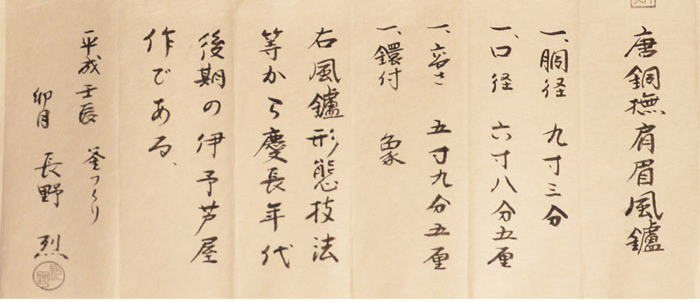 唐銅撫肩眉風鑪
一、胴径 九寸三分
一、口径 六寸八分五厘
一、高さ 五寸九分五厘
一、鐶付 象
右風鑪形態技法
等から慶長年代
後期の伊予芦屋
作である、
平成壬辰 釜つくり
卯月 長野 烈